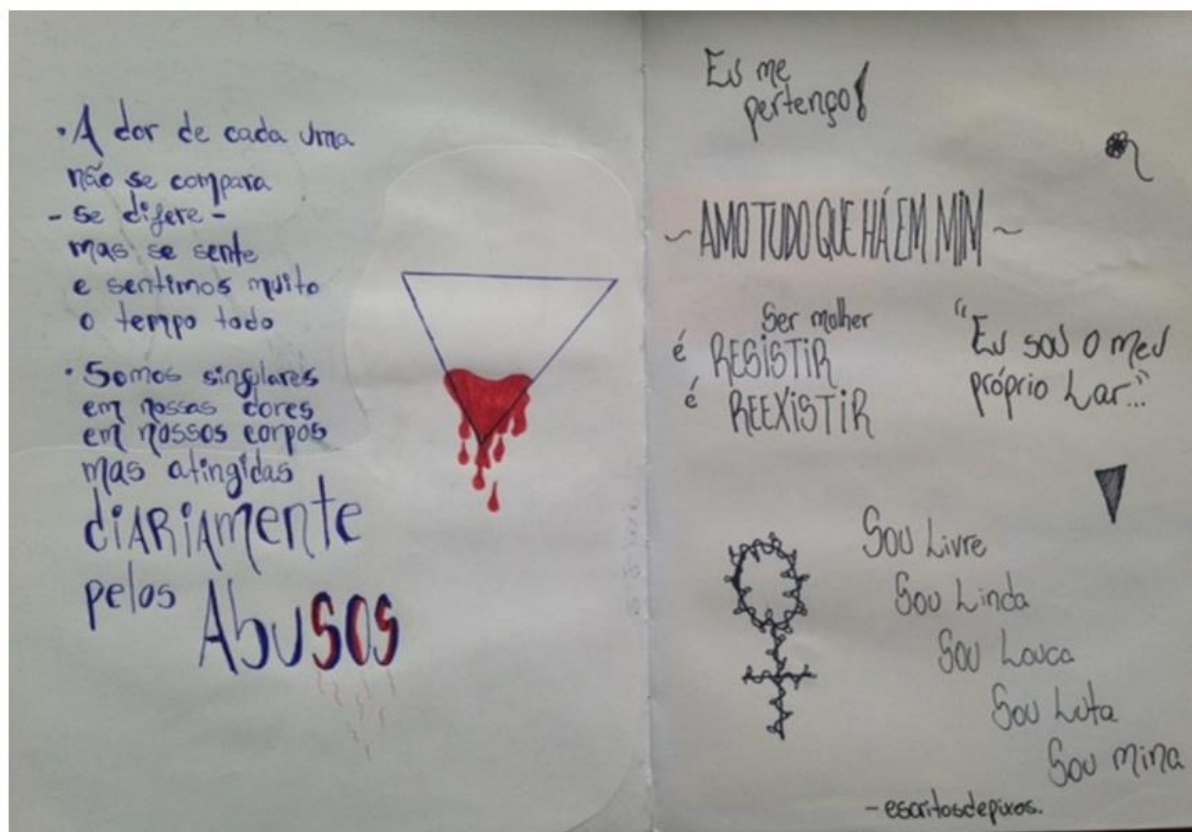 • A dor de cada uma
não se compara
- se difere -
mas se sente
e sentimos muito
o tempo todo
• Somos singulares
em nossas cores
em nossos corpos
mas atingidas
diARiAmente
pelos
AbuSOS
Eu me
pertenço!
~ AMO TUDO QUE HÁ EM MIM ~
Ser mulher
é RESISTIR
é REEXISTIR
"Eu sou o meu
próprio Lar..."
Sou Livre
Sou Linda
Sou Louca
Sou Luta
Sou mina
- escritosdepixos.